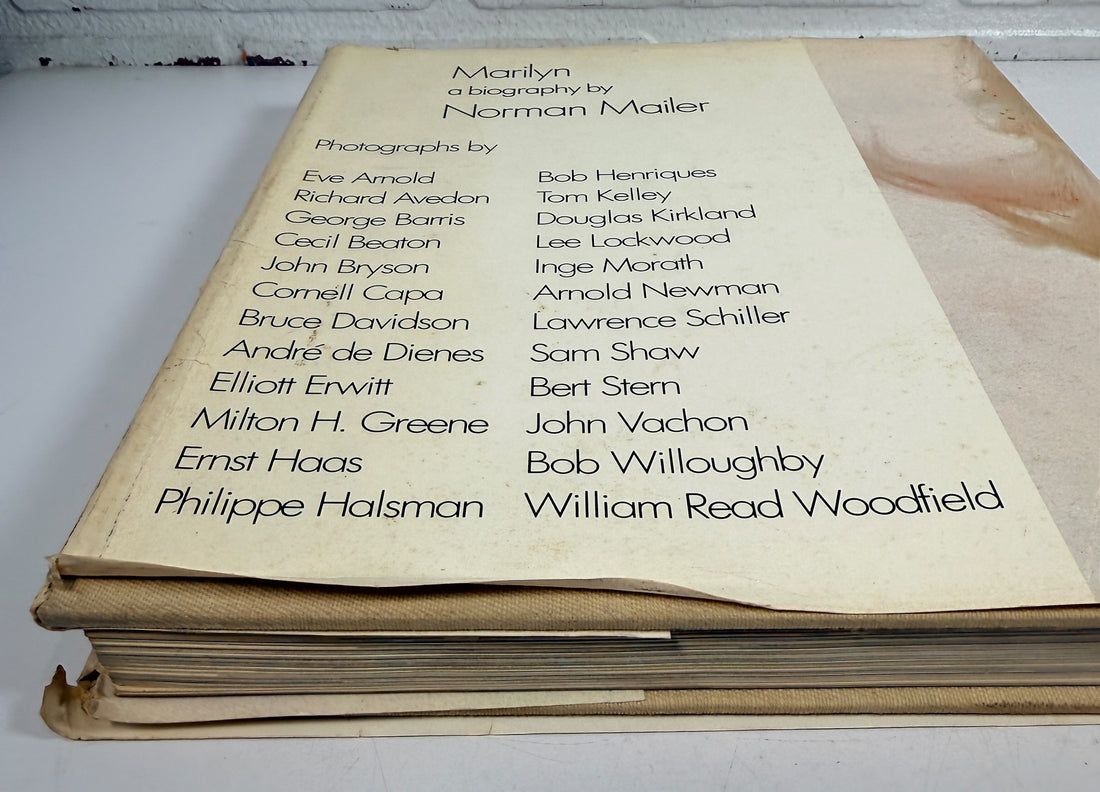 Marilyn
a biography by
Norman Mailer
Photographs by
Eve Arnold
Richard Avedon
George Barris
Cecil Beaton
John Bryson
Cornell Capa
Bruce Davidson
André de Dienes
Elliott Erwitt
Milton H. Greene
Ernst Haas
Philippe Halsman
Bob Henriques
Tom Kelley
Douglas Kirkland
Lee Lockwood
Inge Morath
Arnold Newman
Lawrence Schiller
Sam Shaw
Bert Stern
John Vachon
Bob Willoughby
William Read Woodfield